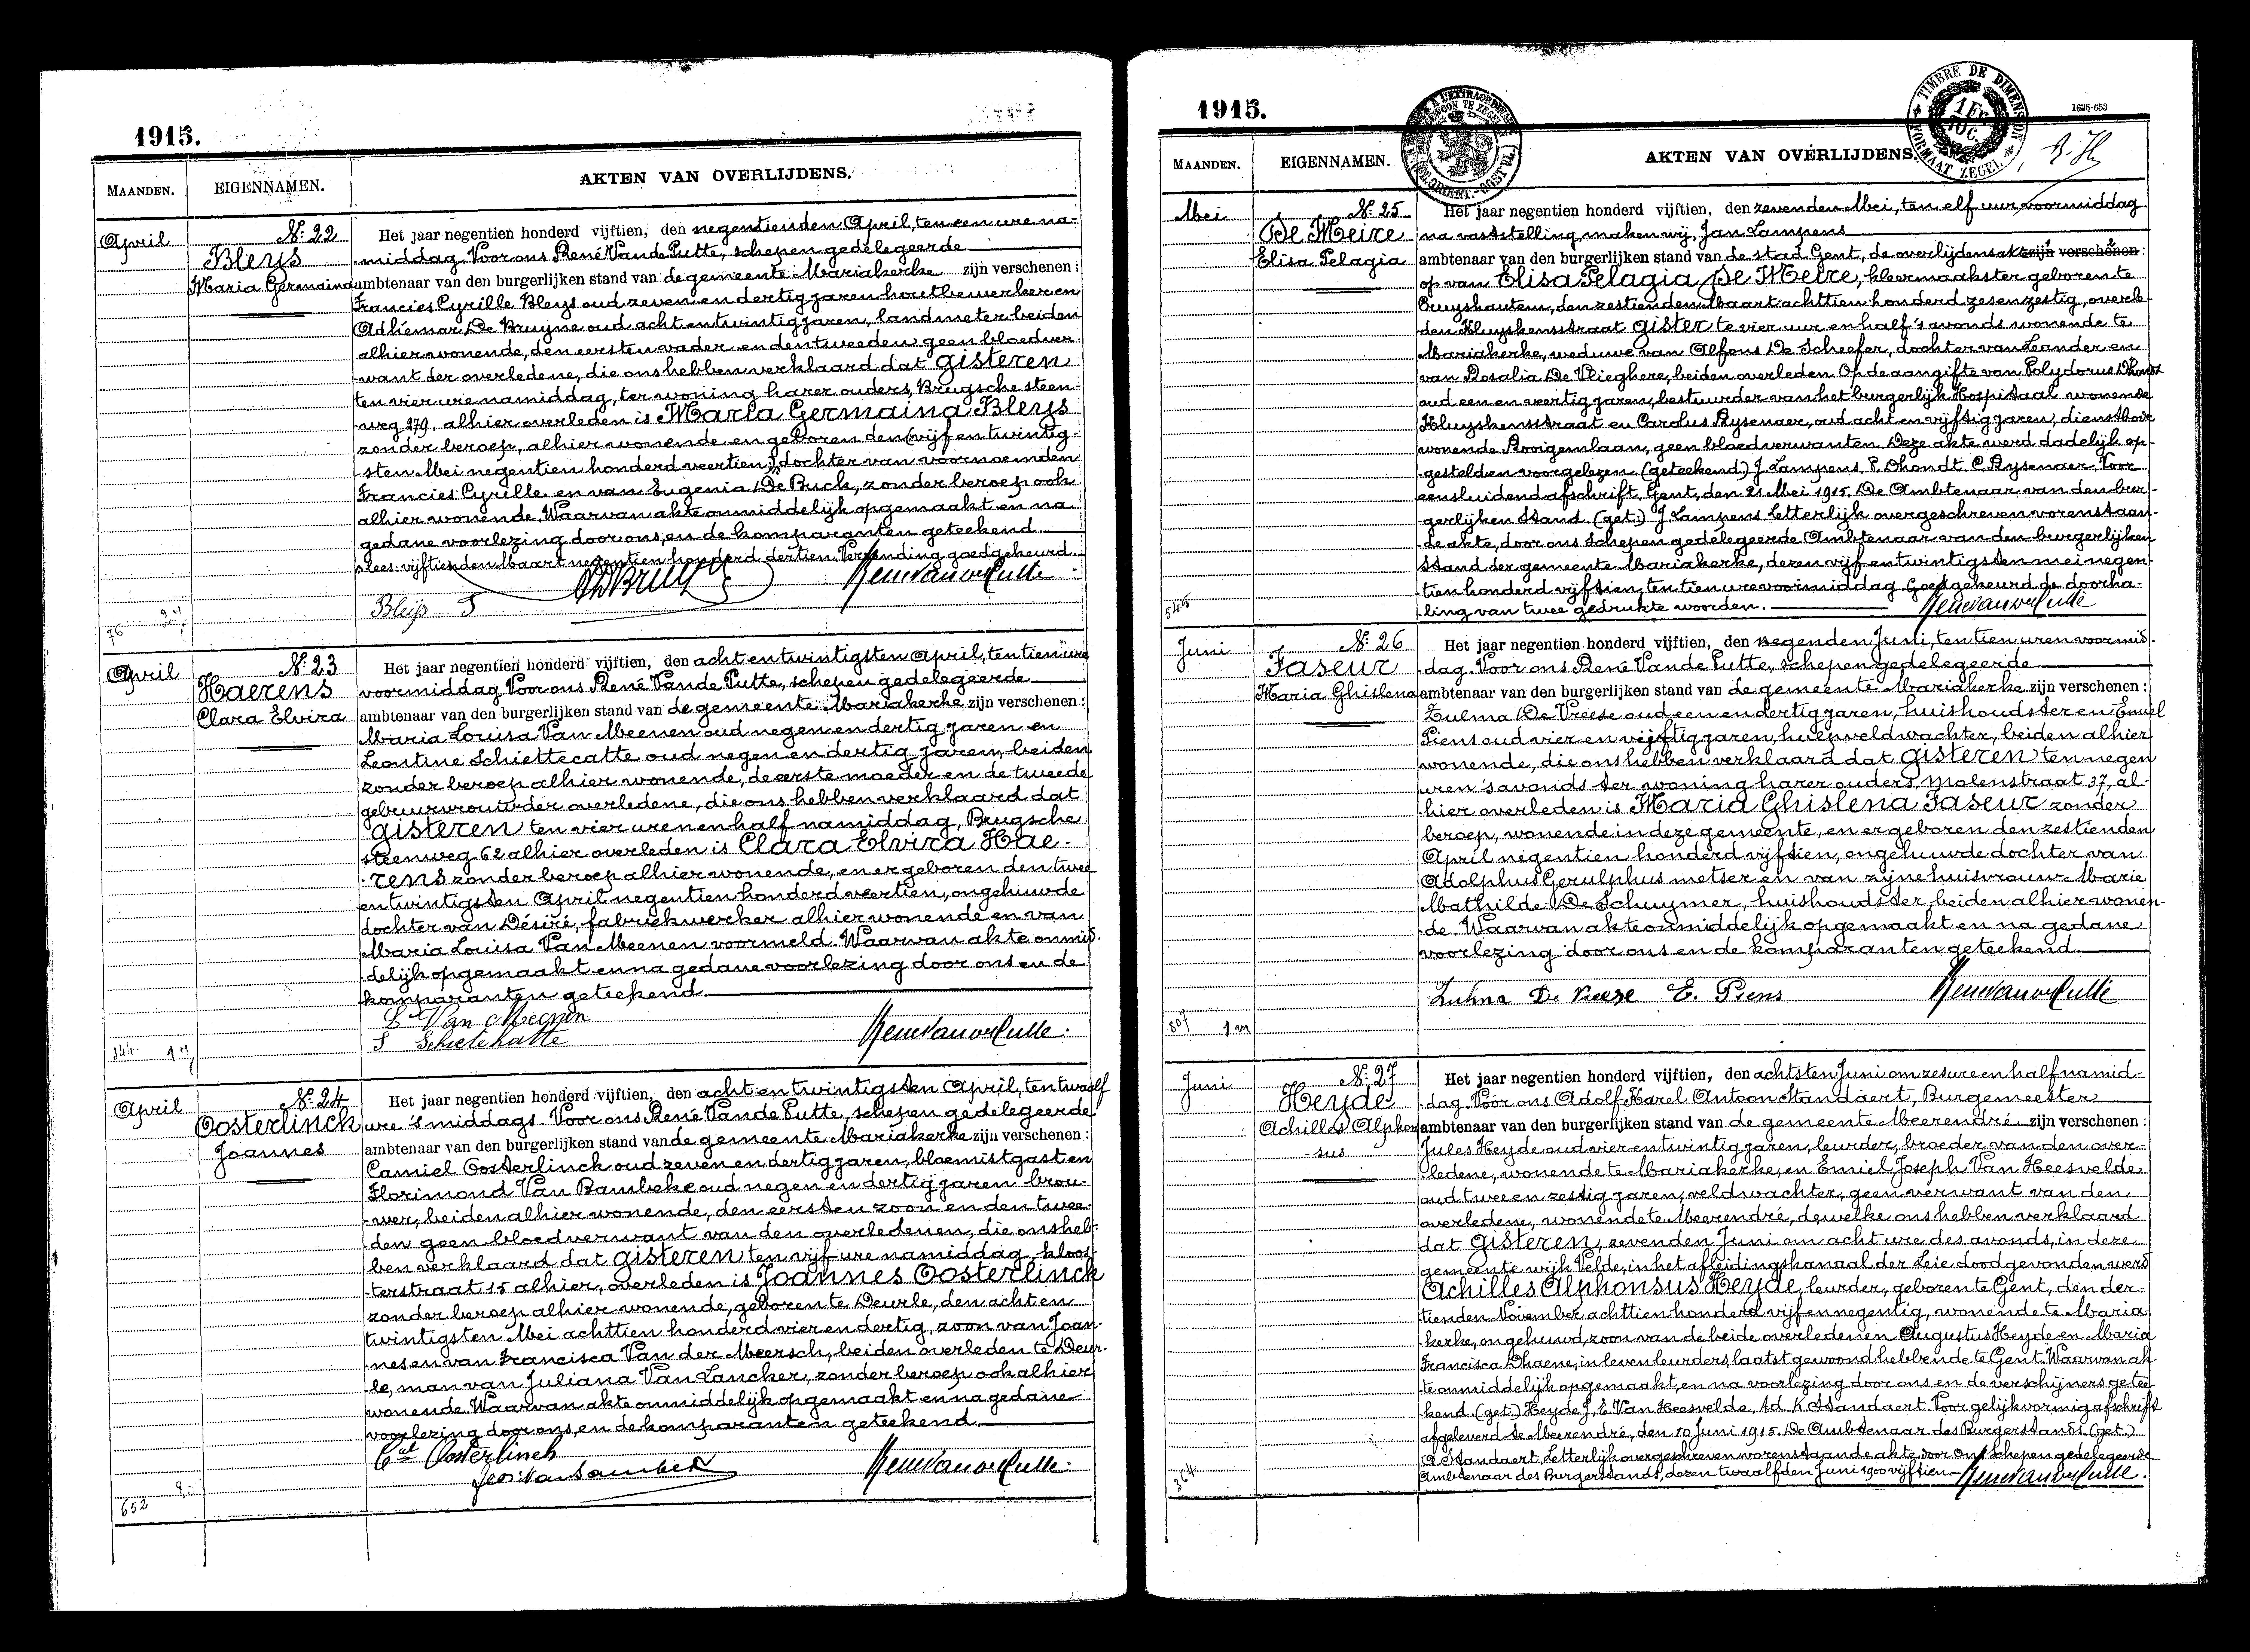 1915.
MAANDEN.
EIGENNAMEN.
AKTEN VAN OVERLIJDENS.
April
No. 22
Bleys
Maria Germaina
Het jaar negentien honderd vijftien, den negentienden April, ten een ure na-
middag. Voor ons René Vande Putte, schepen gedelegeerde
ambtenaar van den burgerlijken stand van de gemeente Mariakerke zijn verschenen:
Francies Cyrille Bleys oud zeven en dertig jaren houtbewerker en
Adhémar De Bruyne oud acht en twintig jaren, landmeter beiden
alhier wonende, den eersten vader en den tweeden geen bloedver-
want der overledene, die ons hebben verklaard dat gisteren
ten vier ure namiddag, ter woning harer ouders, Brugsche steen-
weg 279, alhier overleden is Maria Germaina Bleys
zonder beroep, alhier wonende en geboren den (vijf en twintig-
sten Mei negentien honderd veertien) dochter van voornoemden
Francies Cyrille en van Eugenia De Buck, zonder beroep ook
alhier wonende. Waarvan akte onmiddelijk opgemaakt en na
gedane voorlezing door ons, en de komparanten geteekend.
lees: vijftienden Maart negentien honderd dertien. Verzending goedgekeurd.
Bleys F
AdBruyne
Rene Van de Putte
76
April
No. 23
Haerens
Clara Elvira
Het jaar negentien honderd vijftien, den acht en twintigsten April, ten tien ure
voormiddag Voor ons René Vande Putte, schepen gedelegeerde
ambtenaar van den burgerlijken stand van de gemeente Mariakerke zijn verschenen:
Maria Louisa Van Meenen oud negen en dertig jaren en
Leontine Schiettecatte oud negen en dertig jaren, beiden
zonder beroep alhier wonende, de eerste moeder en de tweede
gebuurvrouw der overledene, die ons hebben verklaard dat
gisteren ten vier uren en half namiddag, Brugsche
steenweg 62 alhier overleden is Clara Elvira Hae-
rens zonder beroep alhier wonende, en er geboren den twee
en twintigsten April negentien honderd veertien, ongehuwde
dochter van Désiré, fabriekwerker alhier wonende en van
Maria Louisa Van Meenen voormeld. Waarvan akte onmid-
delijk opgemaakt en na gedane voorlezing door ons en de
komparanten geteekend
L Van Meenen
S Schietekatte
Rene Van de Putte.
344
April
No. 24
Oosterlinck
Joannes
Het jaar negentien honderd vijftien, den acht en twintigsten April, ten twaalf
ure 's middags. Voor ons René Vande Putte, schepen gedelegeerde
ambtenaar van den burgerlijken stand van de gemeente Mariakerke zijn verschenen:
Camiel Oosterlinck oud zeven en dertig jaren, bloemistgast en
Florimond Van Bambeke oud negen en dertig jaren brou-
wer, beiden alhier wonende, den eersten zoon en den twee-
den geen bloedverwant van den overledenen, die ons heb-
ben verklaard dat gisteren ten vijf ure namiddag, kloos-
terstraat 15 alhier, overleden is Joannes Oosterlinck
zonder beroep alhier wonende, geboren te Deurle, den acht en
twintigsten Mei achttien honderd vier en dertig, zoon van Joan-
nes en van Francisca Van der Meersch, beiden overleden te Deur-
le, man van Juliana Van Lancker, zonder beroep ook alhier
wonende. Waarvan akte onmiddelijk opgemaakt en na gedane
voorlezing door ons, en de komparanten geteekend.
Cel Oosterlinck
Rene Van de Putte.
652
1915.
1635-653
TIMBRE DE DIMENSION
1 Fr.
10 C.
FORMAAT ZEGEL
MAANDEN.
EIGENNAMEN.
AKTEN VAN OVERLIJDENS.
Mei
No. 25
De Meire
Elisa Pelagia
Het jaar negentien honderd vijftien, den zevenden Mei, ten elf uur, voormiddag
na vaststelling maken wij, Jan Lampens
ambtenaar van den burgerlijken stand van de stad Gent, de overlijdensakte zijn verschenen:
op van Elisa Pelagia De Meire, kleermaakster geboren te
Cruyshautem, den zestienden Maart achttien honderd zesenzestig, overle-
den Kluyskensstraat gister te vier uur en half 's avonds wonende te
Mariakerke, weduwe van Alfons De Scheefer, dochter van Leander en
van Rosalia De Vlieghere, beiden overleden. Op de aangifte van Polydorus Dhondt
oud een en veertig jaren, bestuurder van het burgerlijk Hospitaal wonende
Kluyskensstraat en Carolus Rysenaer, oud acht en vijftig jaren, dienstbode
wonende Rooigemlaan, geen bloedverwanten. Deze akte werd dadelijk op-
gesteld en voorgelezen. (geteekend) J. Lampens P. Dhondt C. Rysenaer. Voor
eensluidend afschrift. Gent, den 21 Mei 1915. De Ambtenaar van den bur-
gerlijken Stand. (get:) J. Lampens Letterlijk overgeschreven vorenstaan-
de akte, door ons schepen gedelegeerde Ambtenaar van den burgerlijken
Stand der gemeente Mariakerke, dezen vijf en twintigsten mei negen-
tien honderd vijftien, ten tien ure voormiddag. Goedgekeurd de doorha-
ling van twee gedrukte woorden.
Rene Van de Putte
545
Juni
No. 26
Faseur
Maria Ghislena
Het jaar negentien honderd vijftien, den negenden Juni, ten tien uren voormid-
dag. Voor ons René Vande Putte, schepen gedelegeerde
ambtenaar van den burgerlijken stand van de gemeente Mariakerke zijn verschenen:
Zulma De Vreese oud een en dertig jaren, huishoudster en Emiel
Piens oud vier en vijftig jaren, hulpveldwachter, beiden alhier
wonende, die ons hebben verklaard dat gisteren ten negen
uren 's avonds ter woning harer ouders, Molenstraat 37, al-
hier overleden is Maria Ghislena Faseur zonder
beroep, wonende in deze gemeente, en er geboren den zestienden
April negentien honderd vijftien, ongehuwde dochter van
Adolphus Gerulphus metser en van zijne huisvrouw Marie
Mathilde De Schuymer, huishoudster, beiden alhier wonen-
de. Waarvan akte onmiddelijk opgemaakt en na gedane
voorlezing door ons en de komparanten geteekend.
Zulma De Vreese E. Piens
Rene Van de Putte
807 1 m
Juni
No. 27
Heyde
Achilles Alphon-
sus
Het jaar negentien honderd vijftien, den achtsten Juni om zes ure en half namid-
dag. Vóór ons Adolf Karel Antoon Standaert, Burgemeester
ambtenaar van den burgerlijken stand van de gemeente Meerendré zijn verschenen:
Jules Heyde oud vier en twintig jaren, leurder, broeder van den over-
ledene, wonende te Mariakerke, en Emiel Joseph Van Heesvelde
oud twee en zestig jaren, veldwachter, geen verwant van den
overledene, wonende te Meerendré, dewelke ons hebben verklaard
dat gisteren, zevenden Juni om acht ure des avonds, in deze
gemeente wijk Velde, in het afleidingskanaal der Leie dood gevonden werd
Achilles Alphonsus Heyde, leurder, geboren te Gent, den der-
tienden November achttien honderd vijfennegentig, wonende te Maria-
kerke, ongehuwd, zoon van de beide overledenen Augustus Heyde en Maria
Francisca Dhaene, in leven leurders, laatst gewoond hebbende te Gent. Waarvan ak-
te onmiddelijk opgemaakt, en na voorlezing door ons en de verschijners getee-
kend (get.) Heyde J, E. Van Heesvelde, Ad. K. Standaert. Voor gelijkvormig afschrift
afgeleverd te Meerendré, den 10 Juni 1915. De Ambtenaar des Burgerstands. (get.)
A Standaert. Letterlijk overgeschreven vorenstaande akte door ons schepen gedelegeerde
Ambtenaar des Burgerstands, dezen twaalfden Juni 1900 vijftien
Rene Van de Putte.
364